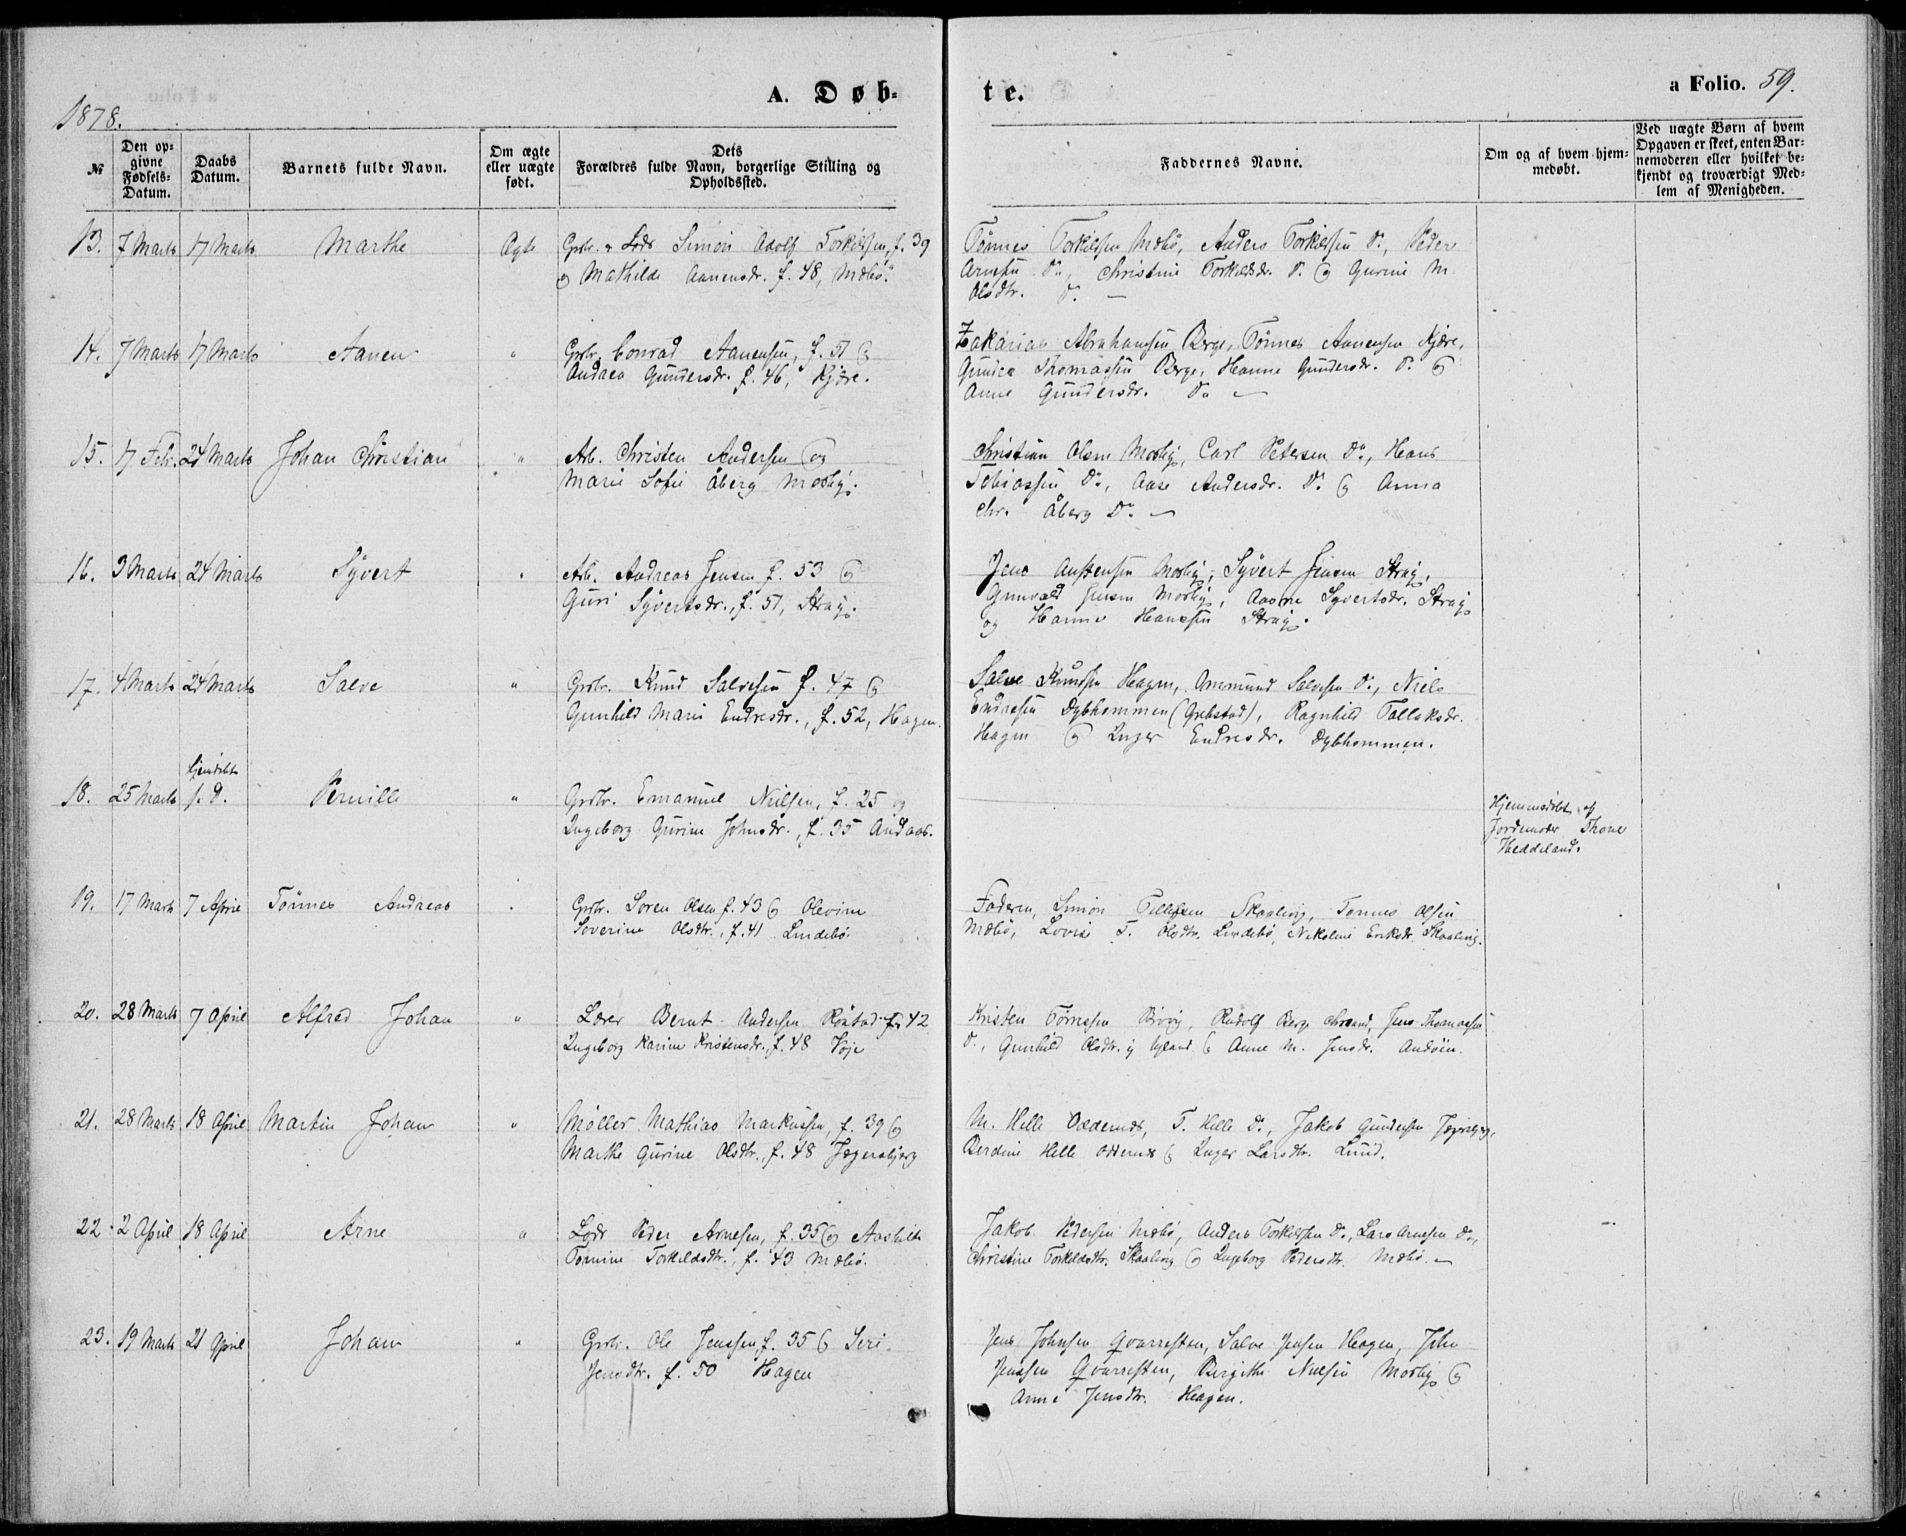 1878.
A. Døb-
te.
a Folio. 59.
№
Den op-
givne
Fødsels-
Datum.
Daabs
Datum.
Barnets fulde Navn.
Om ægte
eller uægte
født.
Dets
Forældres fulde Navn, borgerlige Stilling og
Opholdssted.
Faddernes Navne.
Om og af hvem hjem-
medøbt.
Ved uægte Børn af hvem
Opgaven er skeet, enten Bar-
nemoderen eller hvilket be-
kjendt og troværdigt Med-
lem af Menigheden.
13. 7 Marts 17 Marts Marthe Ægte Grbr. & Lods Simon Adolf Torkilsen, f. 39
og Mathilde Aanensdr. f. 48, Mæbø.
Tønnes Torkilsen Mæbø, Anders Torkilsen Do, Peder
Arnesen Do, Christine Torkelsdr. Do og Gurine M.
Olsdtr. Do —
14. 7 Marts 17 Marts Aanen " Grbr. Conrad Aanensen, f. 51 og
Andrea Gundersdr. f. 46, Kjære.
Zakarias Abrahamsen Berge, Tønnes Aanensen Kjære,
Thomassen Berge, Hanne Gundersdr. Do og
Anne Gundersdr. Do —
15. 17 Febr. 24 Marts Johan Christian " Arb. Christen Andersen og
Marie Sofie Åberg Mosby.
Christian Olsen Mosby, Carl Petersen Do, Hans
Tobiassen Do, Aase Andersdr. Do og Anna
Chr. Åberg Do —
16. 3 Marts 24 Marts Syvert " Arb. Andreas Jensen f. 53 og
Guri Syvertsdr., f. 51, Stray.
Jens Austensen Mosby, Syvert Jensen Stray,
Gunvald Jensen Mosby, Aasne Syvertsdr. Stray
og Hanne Hansen Stray.
17. 4 Marts 24 Marts Salve " Grbr. Knud Salvesen f. 47 og
Gunhild Marie Endresdr., f. 52, Hagen.
Salve Knudsen Hagen, Ommund Salvesen Do, Niels
Endresen Dybhommen (Grebstad), Ragnhild Tallaksdr.
Hagen og Inger Endresdr. Dybhommen.
18. 25 Marts hjemdøbt
s. D. Pernille " Grbr. Emanuel Nielsen, f. 25 og
Ingeborg Gurine Johnsdr., f. 35 Andaas.
Hjemmedøbt af
Jordemoder Thone
Heddeland.
19. 17 Marts 7 April Tønnes Andreas " Grbr. Søren Olsen f. 43 og Olevine
Severine Olsdtr., f. 41 Lindebø.
Faderen, Simon Tellefsen Skaalevig, Tønnes Olsen
Mæbø, Lovise T. Olsdtr. Lindebø, Nikoline Eriksdr. Skaalevig.
20. 28 Marts 7 April Alfred Johan " Lærer Bernt Andersen Røstad f. 42
Ingeborg Karine Kristensdr., f. 48 Voje
Kristen Tørresen Rudolf Berge Chrsand, Jens Thomassen
Do, Gunhild Olsdtr. og Anne M. Jensdr. Andøen.
21. 28 Marts 18 April Martin Johan " Møller Mathias Markussen, f. 39 og
Marthe Gurine Olsdtr. f. 48 Jegersbjerg
M. Helle Oddernes, T. Helle Do, Jakob Gundersen Jegersbjerg,
Berdine Helle Oddernes og Inger Larsdtr. Lund.
22. 2 April 18 April Arne " Lods Peder Arnesen, f. 35 og Aashilde
Tomine Torkeldsdtr., f. 43 Mæbø.
Jakob Pedersen Mæbø, Anders Torkilsen Do, Lars Arnesen Do,
Christine Torkeldsdtr. Skaalevig og Ingeborg Pedersdtr. Mæbø. —
23. 19 Marts 21 April Johan " Grbr. Ole Jenssen f. 35 og Siri
Jensdtr. f. 50 Hagen
Jens Johnsen Qvarresten, Salve Jensen Hagen, John
Jenssen Qvarresten, Birgithe Nielsen Mosby og
Anne Jensdtr. Hagen.